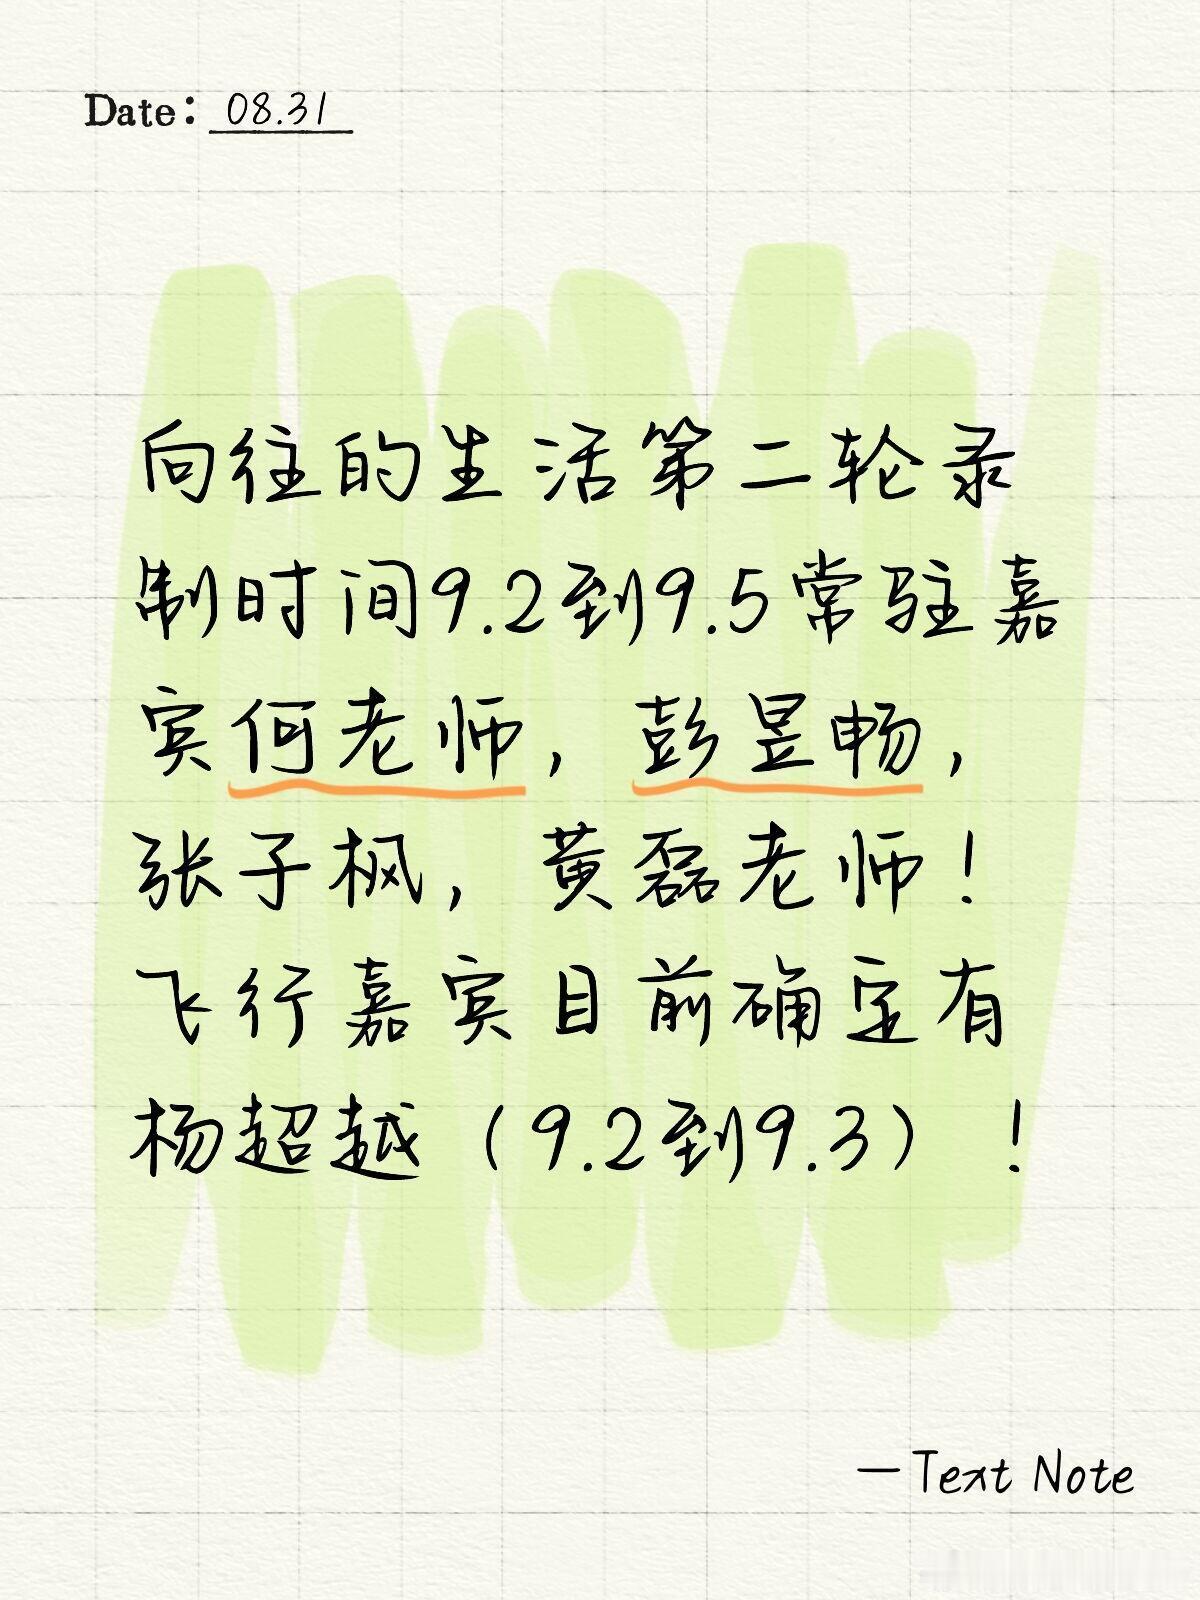 Date: 08.31
向往的生活第二轮录
制时间9.2到9.5常驻嘉
宾何老师，彭昱畅，
张子枫，黄磊老师！
飞行嘉宾目前确定有
杨超越（9.2到9.3）！
—Text Note